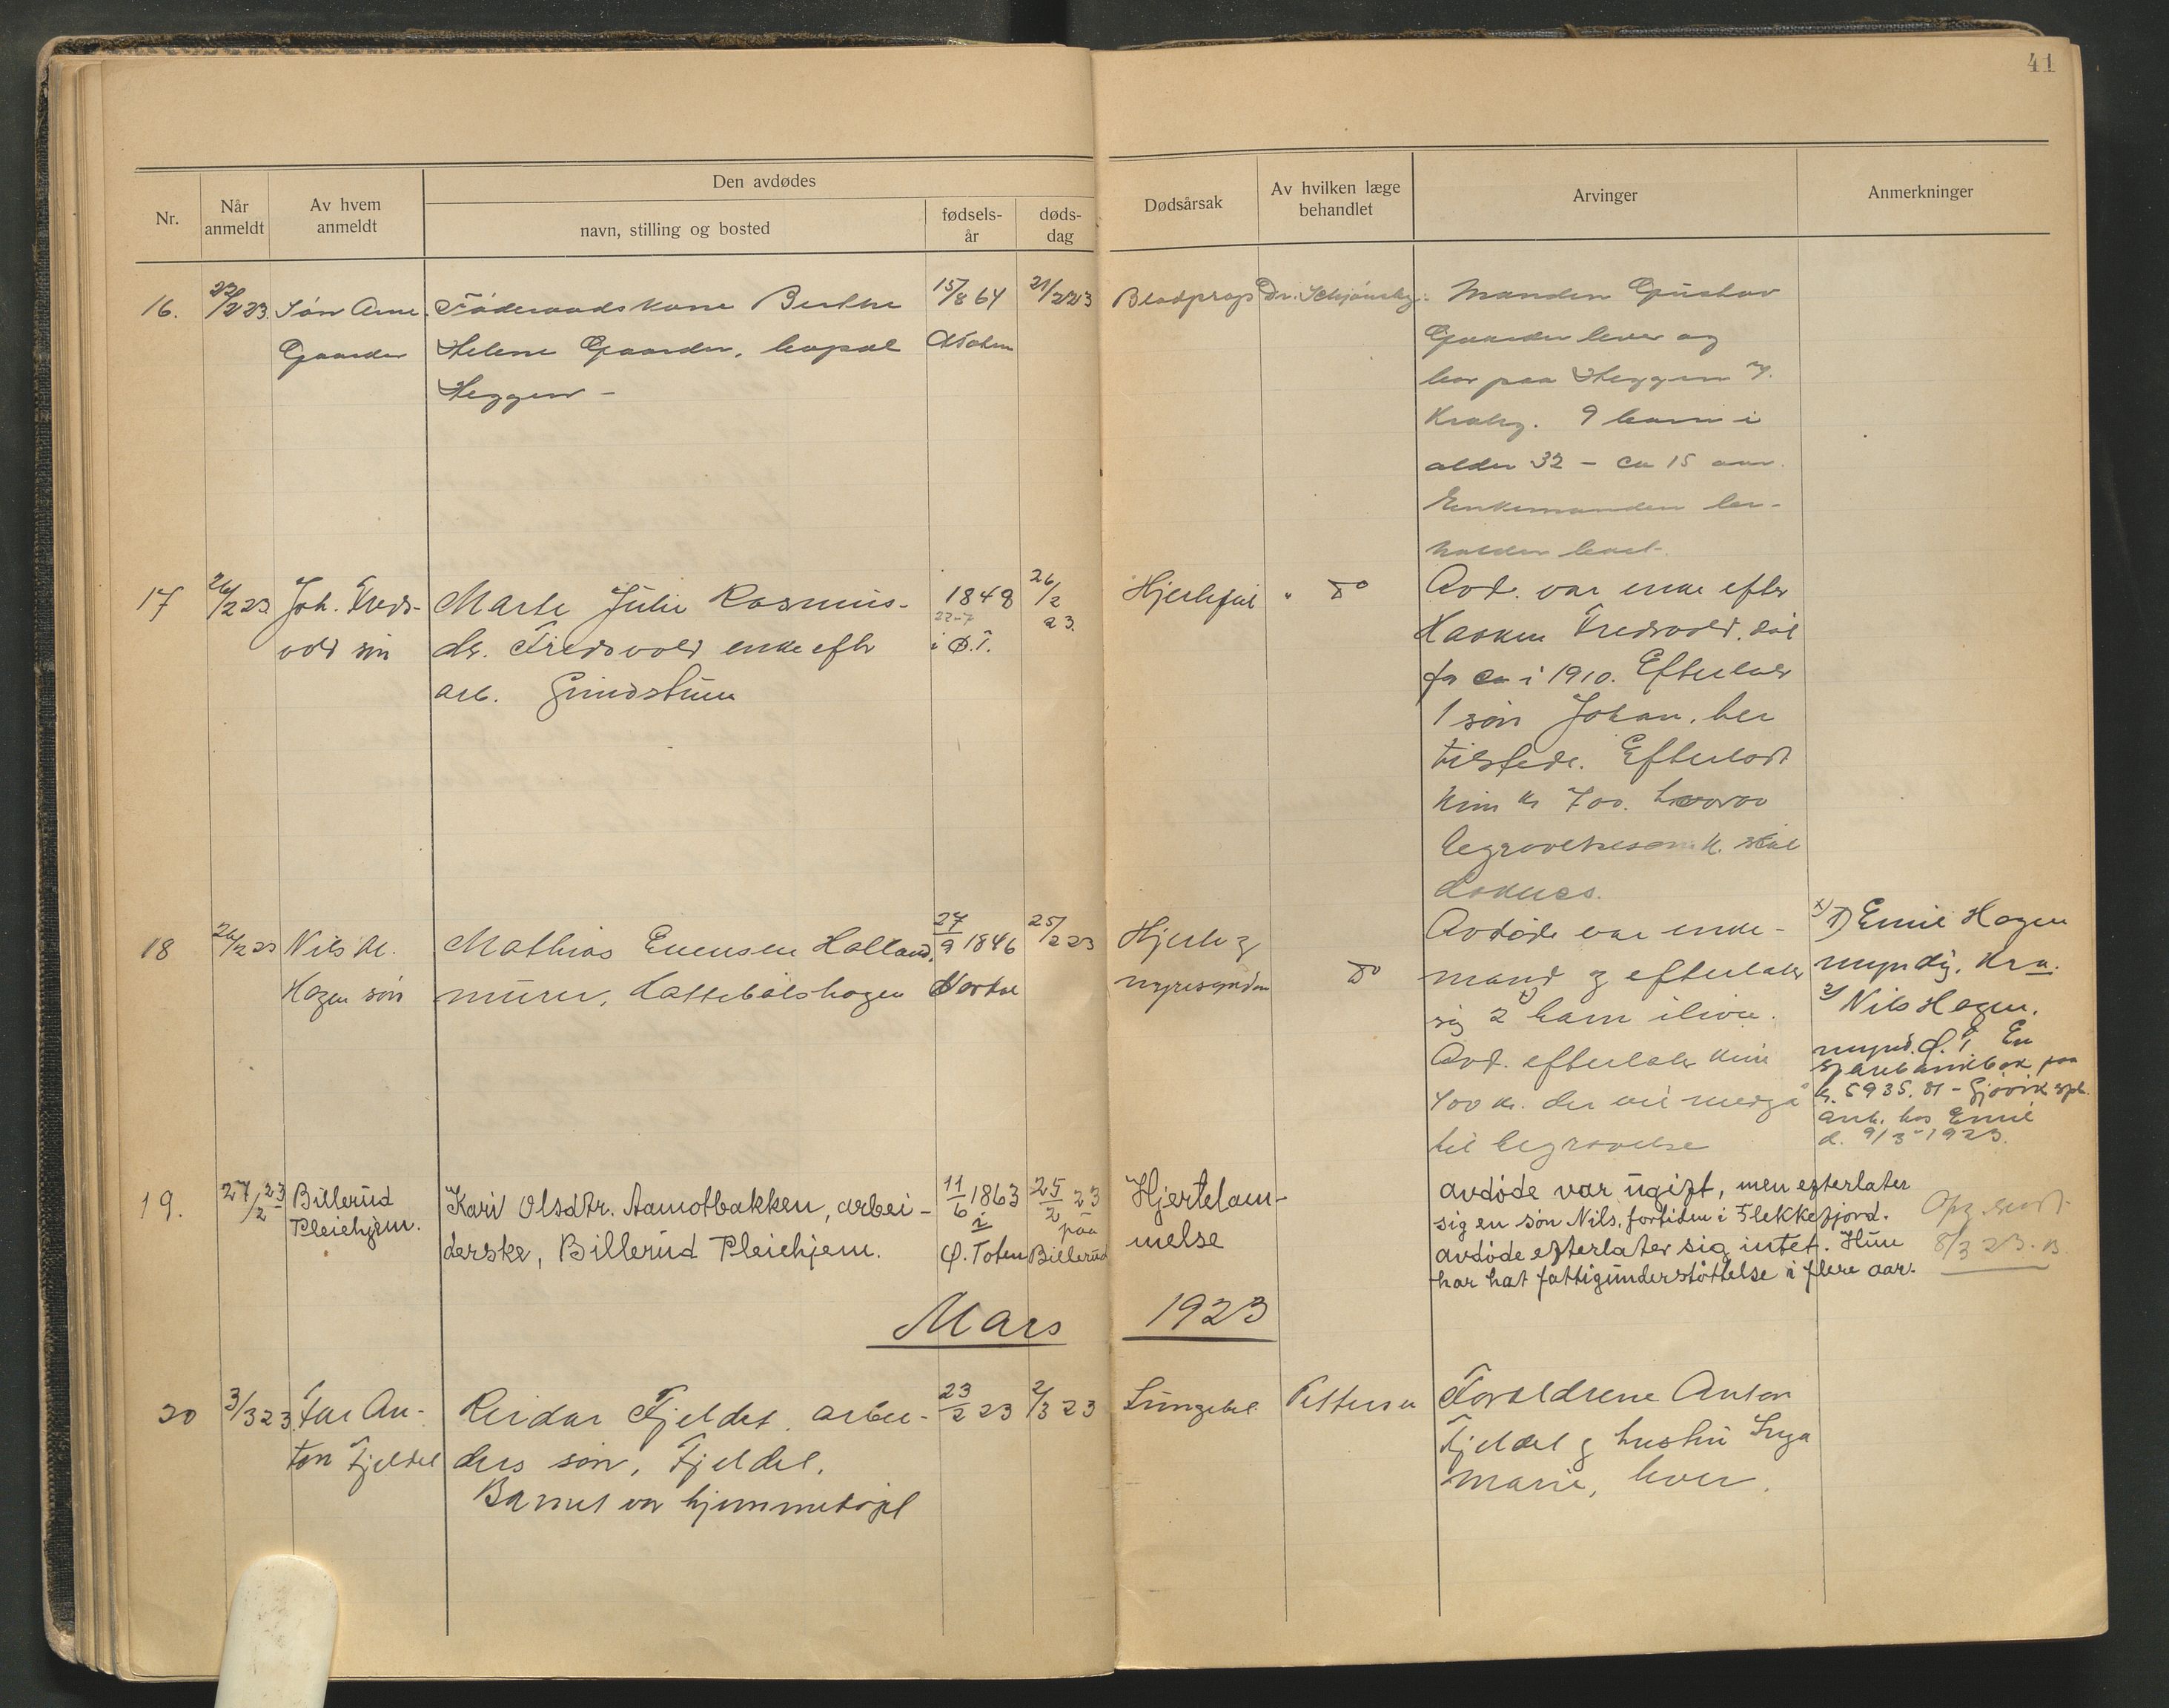 41
Nr.
Når anmeldt
Av hvem anmeldt
Den avdødes
navn, stilling og bosted
fødsels-år
døds-dag
Dødsårsak
Av hvilken læge behandlet
Arvinger
Anmerkninger
16.
22/2 23.
Søn Arne
Gaarder
Føderaadskone Berthe
Helene Gaarder,
Heggen -
15/8 64
21/2 23
Blodprop
Dr.
Manden Gustav
Gaarder lever og
bor paa Heggen
9 barn i
alder 32 - ca 15 aar.
Enkemanden be-
holder boet.
17
26/2 23
Joh. Freds-
vold søn
Marte Julie Rasmus-
dtr. Fredsvold enke eftr
arb. Grindstuen
1848
22-7
i Ø.T.
26/2
23.
Hjertefeil
" do
Avd. var enke efter
Haaken Fredsvold, død
før ca i 1910. Efterlater
1 søn Johan, her
tilstede. Efterlod
kun kr 700. hvorav
begravelsesomk. skal
dækkes.
18
26/2 23
Nils M.
Hagen søn
Mathias Evensen Holland,
murer,
27/9 1846
25/2 23
Hjerte og
nyresygdom
do
Avdøde var enke-
mand og efterlater
sig 2 x) barn ilive.
Avd. efterlater kun
400 kr. der vil medgå
til begravelse
x) 1) Emil Hagen
myndig, Kra.
2) Nils Hagen.
mynd. Ø. T. En
sparebankbok paa
kr. 5935. - Gjøvik spb.
anh. hos Emil
d. 9/3-1923.
19.
27/2 23
Billerud
Pleiehjem.
Kari Olsdtr. Aamotbakken, arbei-
derske, Billerud Pleiehjem.
11/6 1863
i
Ø. Toten
25/2 23
paa
Billerud
Hjertelam-
melse
avdøde var ugift, men efterlater
sig en søn Nils, fortiden i Flekkefjord.
avdøde efterlater sig intet. Hun
har hat fattigunderstøttelse i flere aar.
Opg. sendt
8/3 23. B.
Mars 1923
20
3/3 23
Far An-
ton Fjeldet
Reidar Fjeldet, arbei-
ders søn, Fjeldet.
Barnet var hjemmedøpt
23/2 23
2/3 23
Lungebet.
Pettersen
Forældrene Anton
Fjeldet og hustru Inga
Marie, lever.